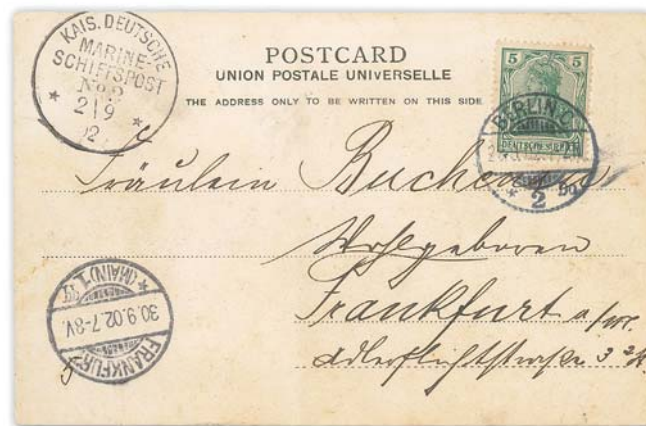 KAIS. DEUTSCHE
MARINE-
SCHIFFSPOST
No. 2
* 2|9 *
02
POSTCARD
UNION POSTALE UNIVERSELLE
THE ADDRESS ONLY TO BE WRITTEN ON THIS SIDE
5 5
DEUTSCHES REICH
BERLIN C.
* 2 *
Fräulein
Wohlgeboren
Frankfurt a/M.
Adlerflychtstraße 3
FRANKFURT
*(MAIN)*1.
30.9.02.7-8V.
5